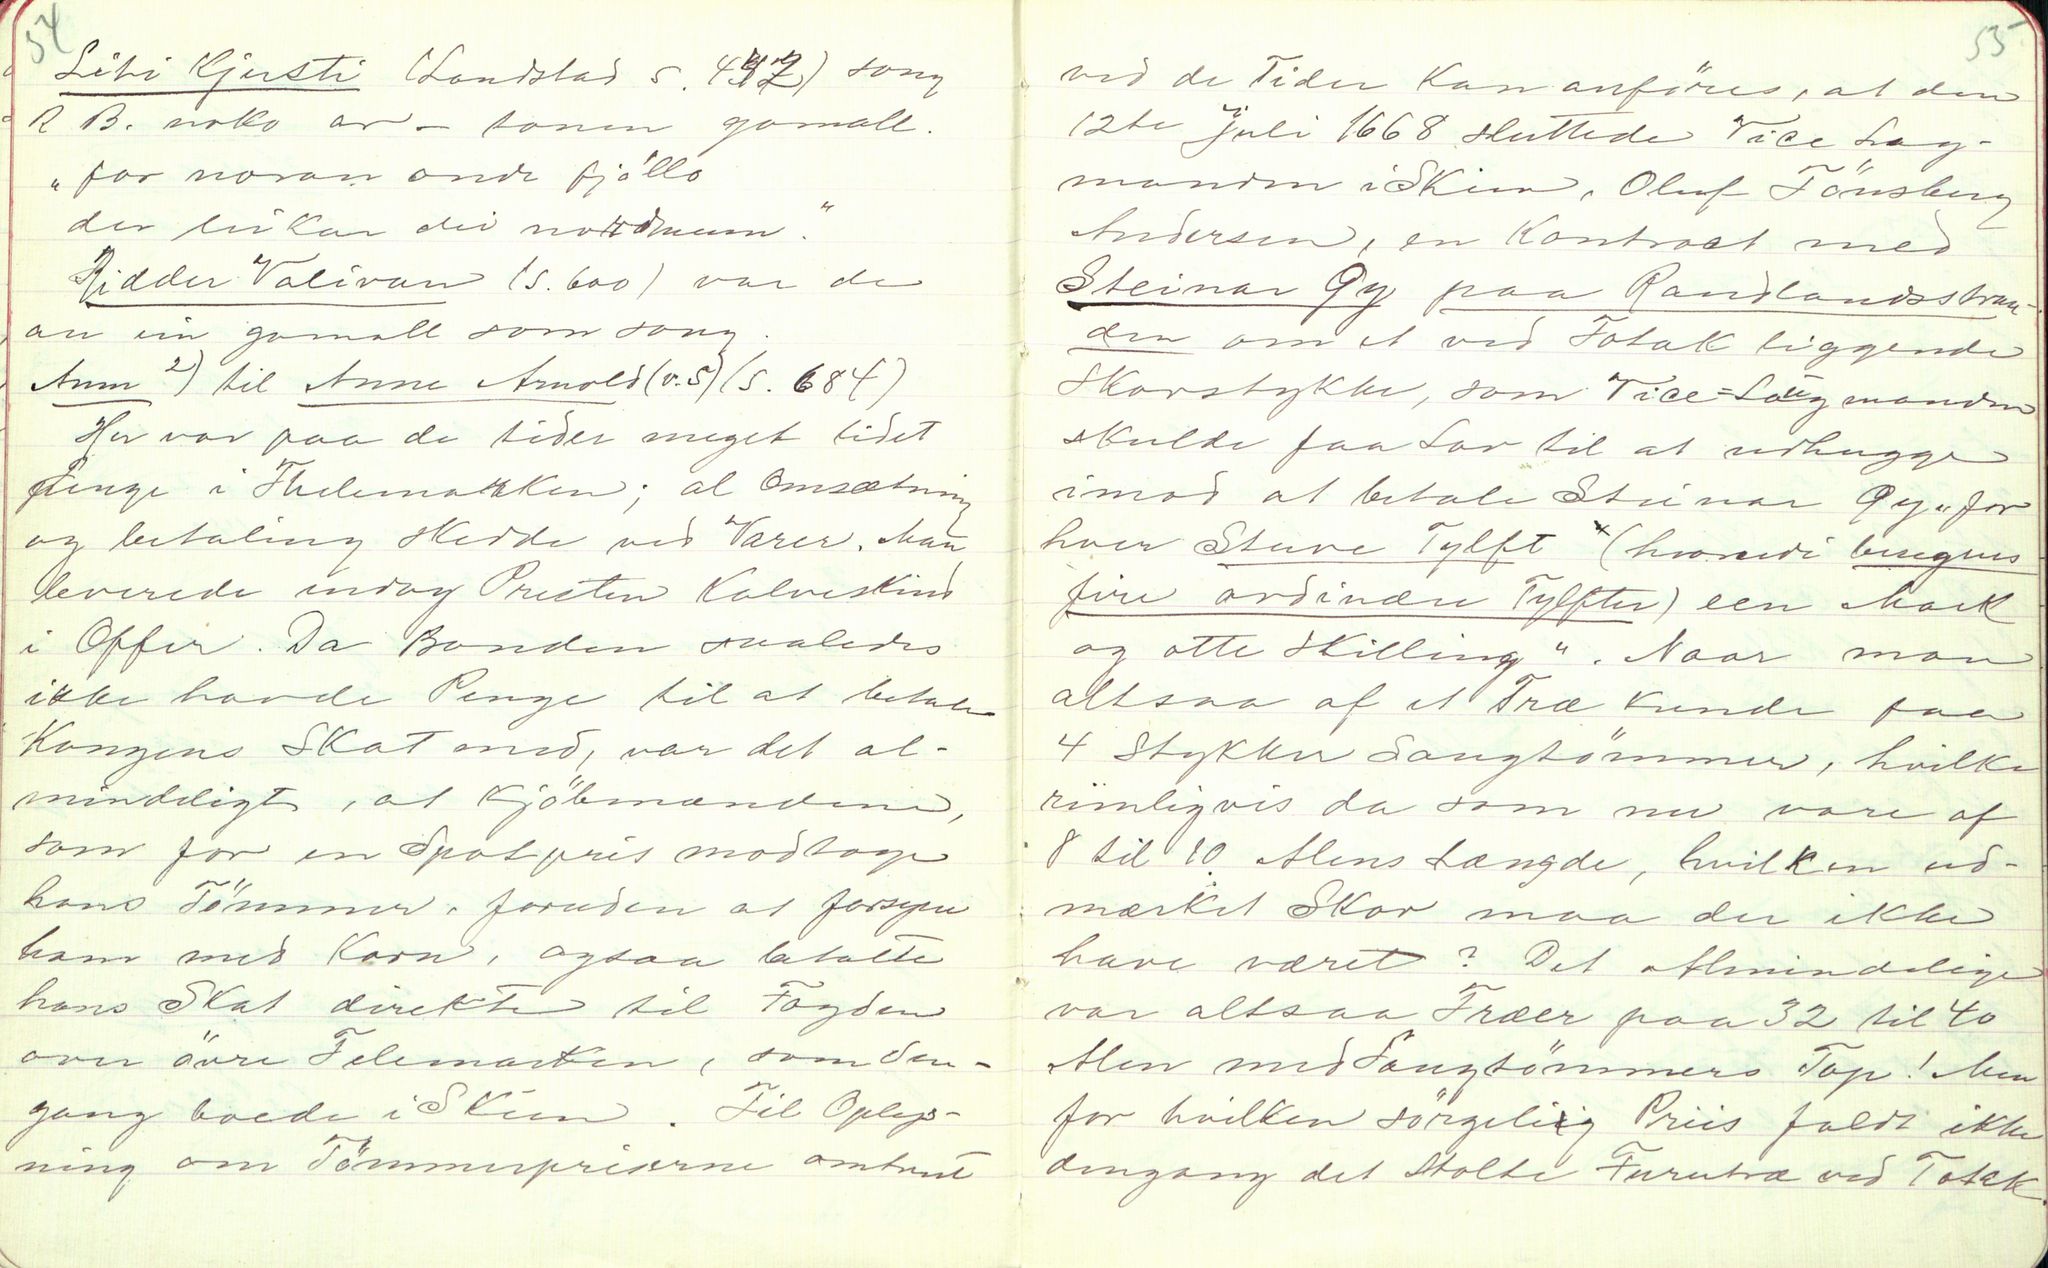 54
Liti Kjersti (Landstad s. 442) song
R B. noko av – tonen gamall.
„for noran onde fjöllo
der leikar dei nordmenn."
Ridder Valivan (s. 600) var de
an ein gamall som song.
Anm 2) til Anne Arnold (v. 5) (s. 684)
Her var paa de tider meget lidet
Penge i Thelemarken; al Omsætning
og betaling skedde ved Varer. Man
leverede endog Presten Kalveskind
i Offer. Da Bonden saaledes
ikke havde Penge til at betale
Kongens Skat med, var det al-
mindeligt, at Kjöbmændene,
som for en Spotpris modtoge
hans Tömmer, foruden at forsyne
ham med Korn, ogsaa betalte
hans Skat direkte til Fogden
over övre Telemarken, som den-
gang boede i Skien. Til Oplys-
ning om Tömmerpriserne omtrent
55
ved de Tider kan anföres, at den
12te Juli 1668 sluttede Vice Lag-
manden i Skien, Oluf Tönsberg
Andersen, en Kontract med
Steinar Qy paa Randlandsstran-
den om et ved Totak liggende
Skovstykke, som Vice=Laugmanden
skulde faa Lov til at udhugge
imod at betale Steinar Qy „for
hver Stuve Tylft x (hvorved beregnes
fire ordinære Tylfter) een Mark
og otte Skilling". Naar man
altsaa af et Træ kunde faa
4 Stykker Saugtömmer, hvilke
rimligvis da som nu vare af
8 til 10 Alens Længde, hvilken ud-
mærket Skov maa der ikke
have været? Det Almindelige
var altsaa Træer paa 32 til 40
Alen med Saugtömmers Top! Men
for hvilken sörgelig Priis faldt ikke
dengang det stolte Furutræ ved Totak.